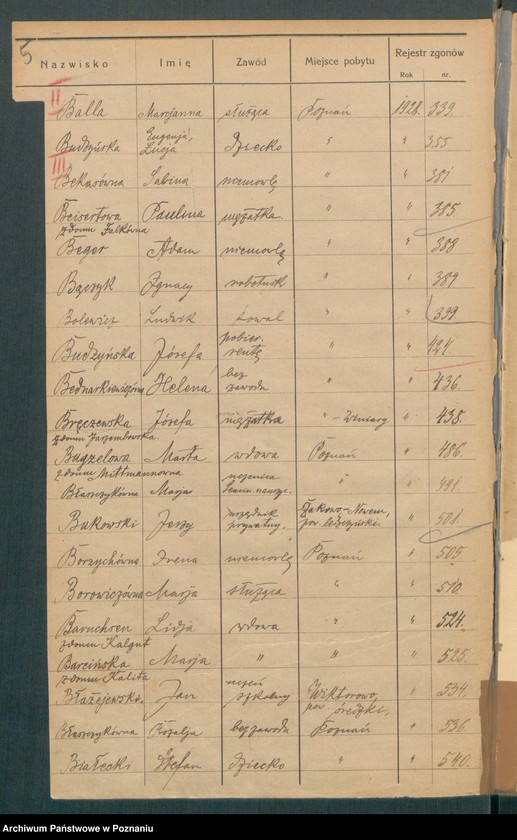 5
Nazwisko Imię Zawód Miejsce pobytu Rejestr zgonów
Rok nr.
II
Balla Marjanna służąca Poznań 1928. 339.
Budzyńska Eugenja, Łucja dziecko " " 355
III
Bekasówna Sabina niemowlę " " 381
Beisertowa Paulina mężatka. " " 385.
z domu Falkówna
Beger Adam niemowlę " " 388
Bączyk Ignacy robotnik " " 389
Bolewicz Ludwik kowal " " 399
Budzyńska Józefa pobier. rentę " " 424.
Bednarkiewiczówna Helena bez zawodu " " 436.
Bręczewska Józefa mężatka " - Winiary " 438.
z domu Jarzembowska.
Bugzelowa Marta wdowa Poznań " 486.
z domu Mittmannówna
Błaszczykówna Marja uczenica " " 491
Bukowski Jerzy urzędnik prywatny. Nowem, " 501.
Borzychówna Irena niemowlę Poznań " 505.
Borowiczówna Marja służąca " " 510.
Baruchsen Lidja wdowa " " 524.
z domu Kalgut
Barcińska Marja " " " 525.
z domu Kalita
Błażejewski. Jan uczeń szkolny Wiktorowo, " 534.
Błaszczykówna Rozalja bez zawodu Poznań " 536.
Białecki Stefan dziecko " " 540.
Archiwum Państwowe w Poznaniu